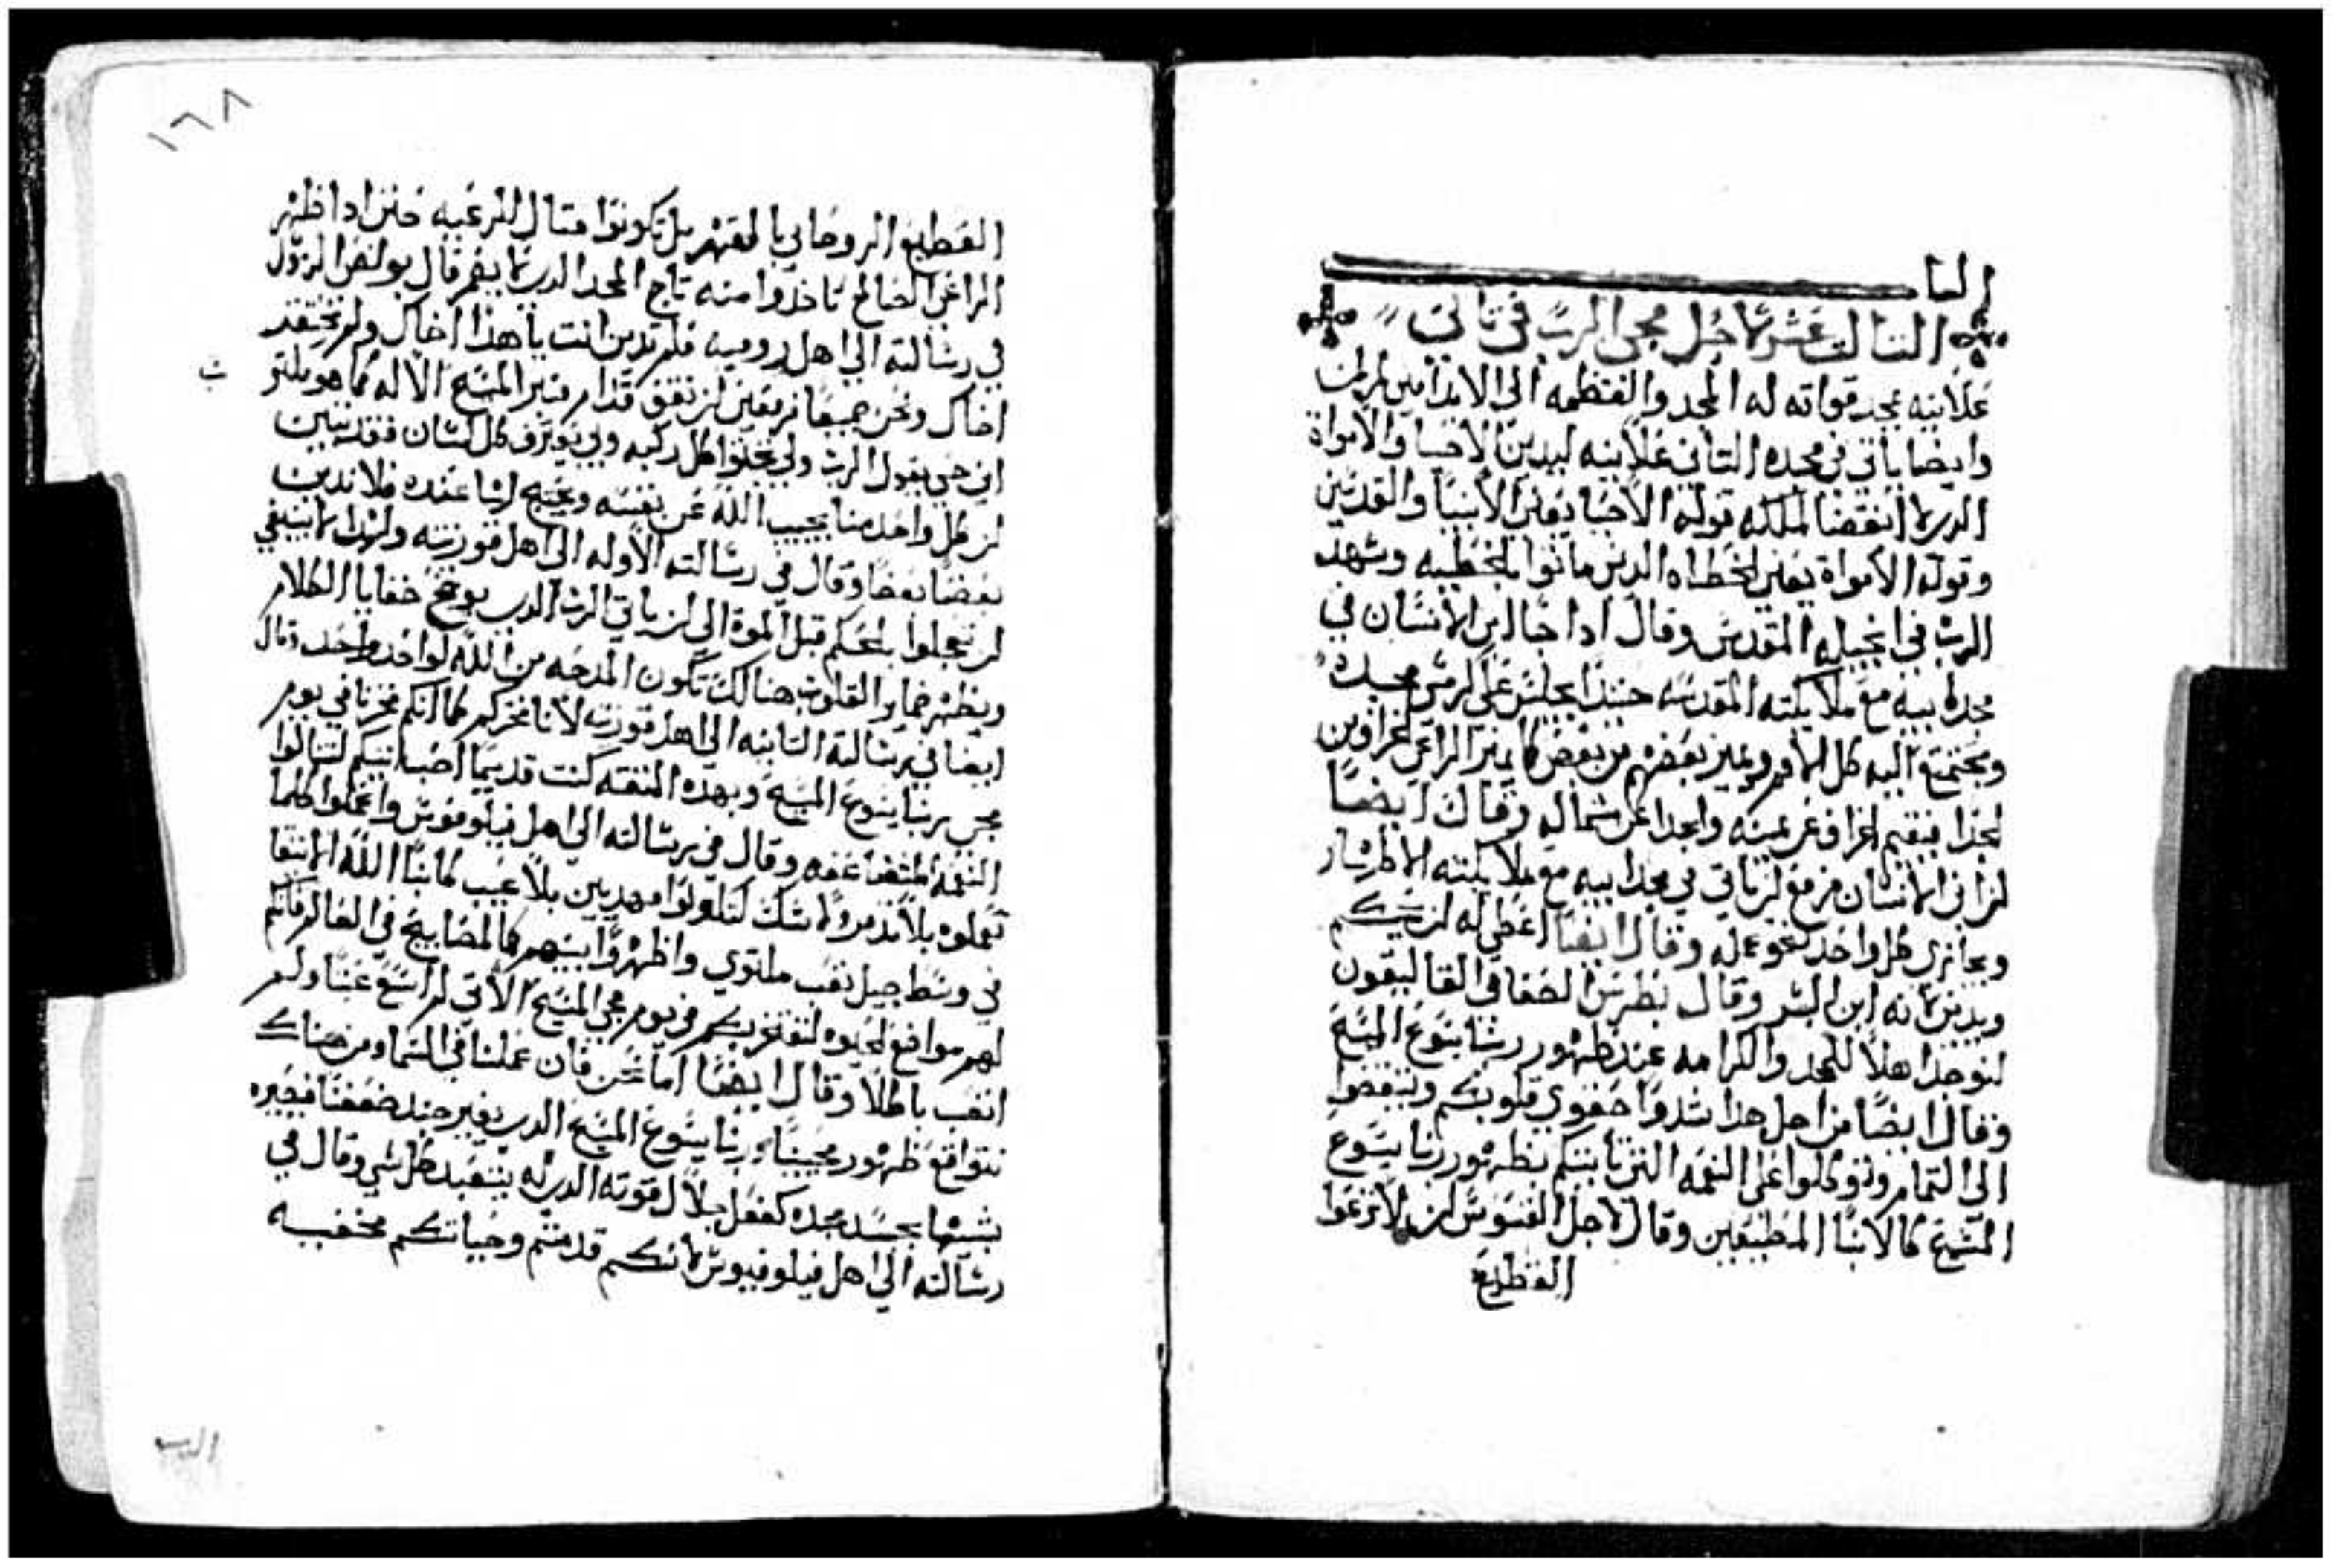 البا
الثالث عشر لاجل مجي الرب في تاني
علانيه بمجد قواته له المجد والعظمه الى الابد امين
وايضا ياتي في مجده التاني علانيه ليدين الاحيا والامواة
الدي لا انقضا لملكه قوله الاحيا يعني الانبيا والقديسين
وقوله الامواة يعني الخطاه الدين ماتوا بالخطيه وشهد
الرب في انجيله المقدس وقال ادا جا ابن الانسان في
مجده ابيه مع ملايكته المقدسه حينيدا يجلس على كرسي مجده
ويجتمع اليه كل الامم ويميز بعضهم من بعض كما يميز الراعي الخراف من
الجدا فيقيم الخراف عن يمينه والجدا عن شماله وقال ايضا
ان ابن الانسان مزمع ان ياتي في مجد ابيه مع ملايكته الاطهار
ويجازي كل واحد كنحو عمله وقال ايضا اعطي له ان يحكم
ويدين لانه ابن البشر وقال بطرس الصفا في القاتاليقون
لنوجد اهلا للمجد والكرامه عند ظهور ربنا يسوع المسيح
وقال ايضا من اجل هدا شدوا حقوي قلوبكم وتيقضوا
الى التمام وتوكلوا على النعمه التي تاتيكم بظهور ربنا يسوع
المسيح كالابنا المطيعين وقال لاجل القسوس ان لا ترعوا
القطيع
١٦٨
القطيع الروحاني بالقهر بل تكونوا متال للرعيه حتى ادا ظهر
الراعي الصالح تاخدوا منه تاج المجد الدي لا يضمر قال بولص الرسول
في رسالته الى اهل روميه فلم تدين انت يا هدا اخاك ولم تحتقر
اخاك ونحن جميعا مزمعين ان نقف قدام منبر المسيح الاله كما هو مكتوب
اني حي يقول الرب ولي تجتوا كل ركبه ولي يعترف كل لسان فقد تبين
ان كل واحد منا يجيب الله عن نفسه ويحتج لما عنده فلا ندين
بعضنا بعضا وقال في رسالته الاوله الى اهل قورنتيه ولهدا لا ينبغي
ان تعجلوا بالحكم قبل الموة الي ان ياتي الرب الدي يوضح خفايا الظلام
ويظهر ضماير القلوب هنالك تكون المدحه من الله لواحد واحد وقال
ايضا في رسالته التانيه الي اهل قورنتيه لاننا فخركم كما انكم فخرنا في يوم
مجي ربنا يسوع المسيح وبهده التقه كنت قديما احب اتيكم لتنالوا
النعمه المتضاعفه وقال في رسالته الى اهل فيلوفوس واعملوا كلما
تعملوه بلا تدمر ولا شك لتكونوا مهديين بلا عيب كابنا الله الانقيا
في وسط جيل صعب ملتوي واظهروا بينهم كالمصابيح في العالم فانكم
لهم مواضع الحيوه لنفتخر بكم في يوم مجي المسيح الاتي لم اسع عبتا ولم
اتعب باطلا وقال ايضا اما نحن فان عملنا في السما ومن هناك
نتوقع ظهور محيينا ربنا يسوع المسيح الدي يغير جسد ضعفنا فيصيره
شبيها بجسد مجده كفعل جلال قوته الدي له يتعبد كل شي وقال في
رسالته الى اهل فيلوفيوس لانكم قد متم وحياتكم مخفيه